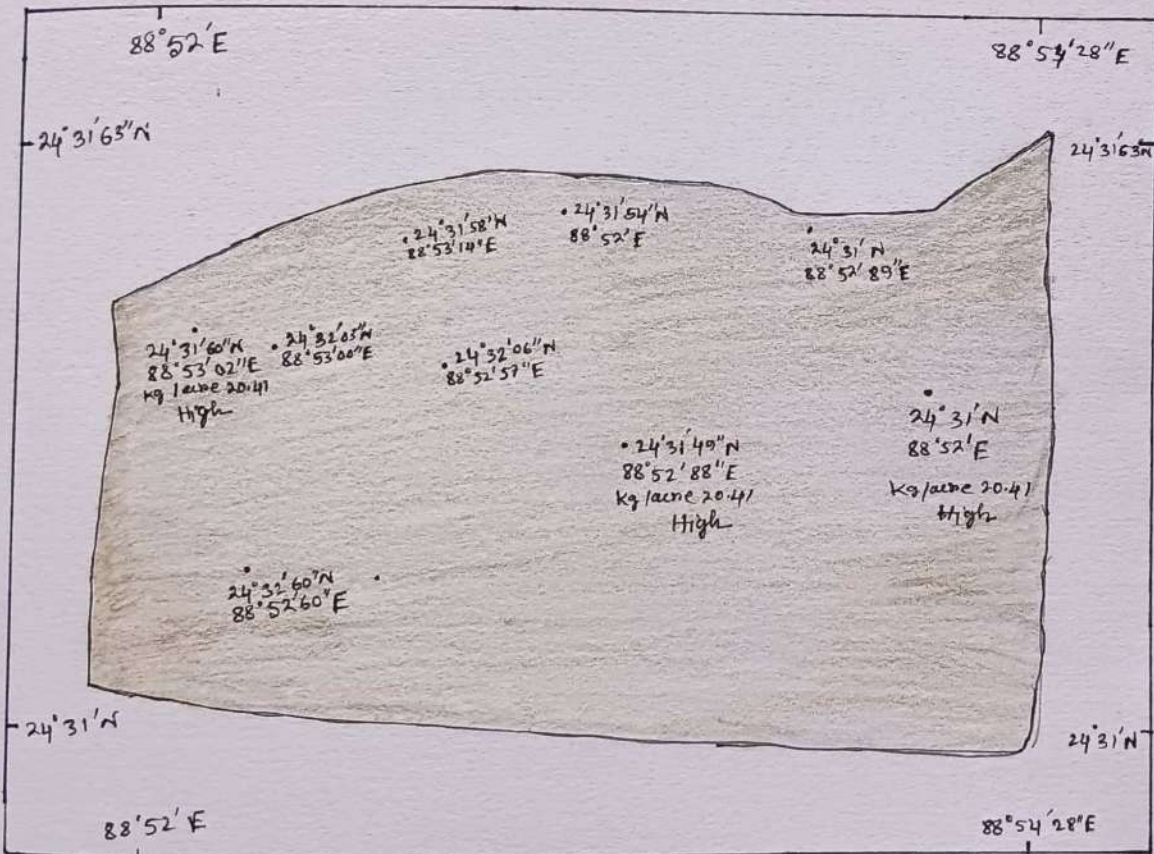 88°52'E
88°54'28"E
24°31'63"N
24°31'63"N
24°31'58"N
88°53'14"E
24°31'54"N
88°52'E
24°31'N
88°52'89"E
24°31'60"N
88°53'02"E
kg/acre 20.41
High
24°32'03"N
88°53'00"E
24°32'06"N
88°52'57"E
24°31'49"N
88°52'88"E
kg/acre 20.41
High
24°31'N
88°52'E
kg/acre 20.41
High
24°32'60"N
88°52'60"E
24°31'N
24°31'N
88°52'E
88°54'28"E